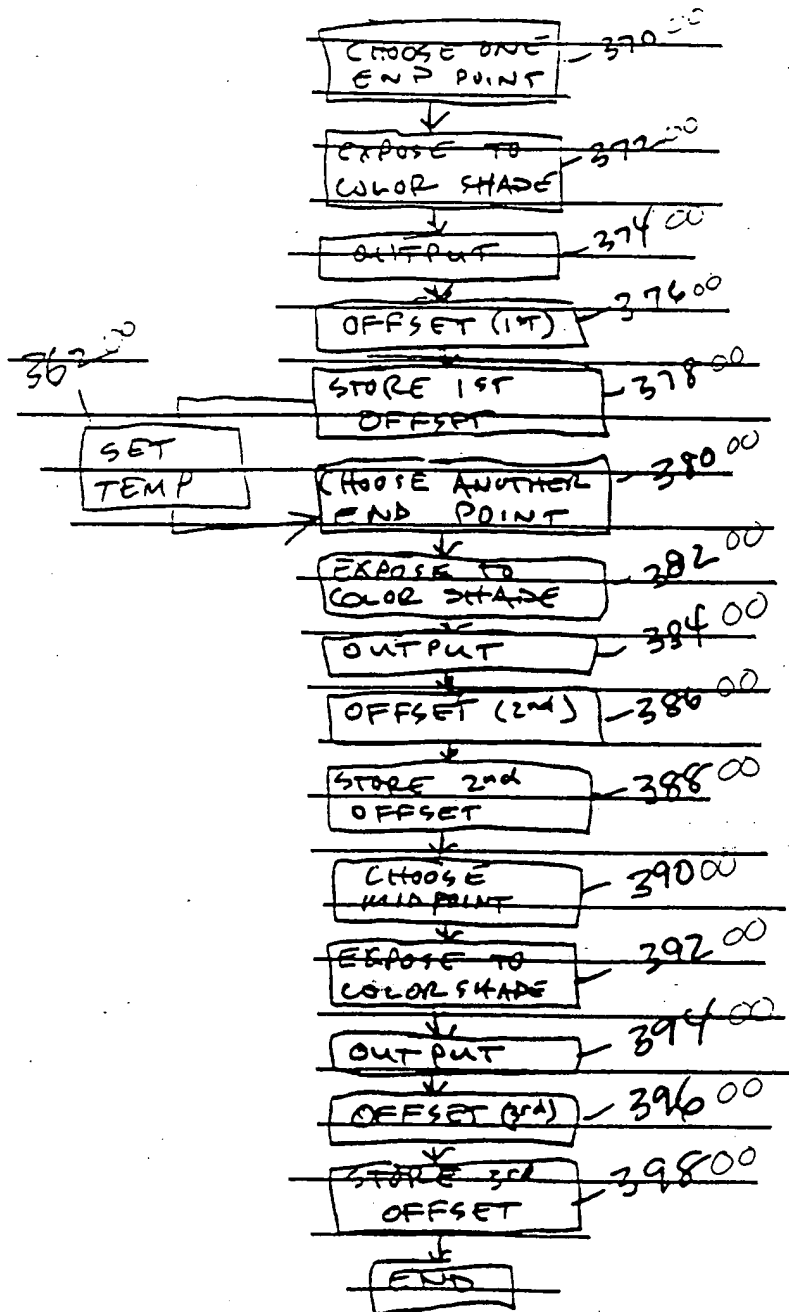 CHOOSE ONE
END POINT
37000
EXPOSE TO
COLOR SHADE
37200
OUTPUT
37400
OFFSET (1ST)
37600
36200
STORE 1ST
OFFSET
37800
SET
TEMP
CHOOSE ANOTHER
END POINT
38000
EXPOSE TO
COLOR SHADE
38200
OUTPUT
38400
OFFSET (2nd)
38600
STORE 2nd
OFFSET
38800
CHOOSE
MIDPOINT
39000
EXPOSE TO
COLOR SHADE
39200
OUTPUT
39400
OFFSET (3rd)
39600
STORE 3rd
OFFSET
39800
END